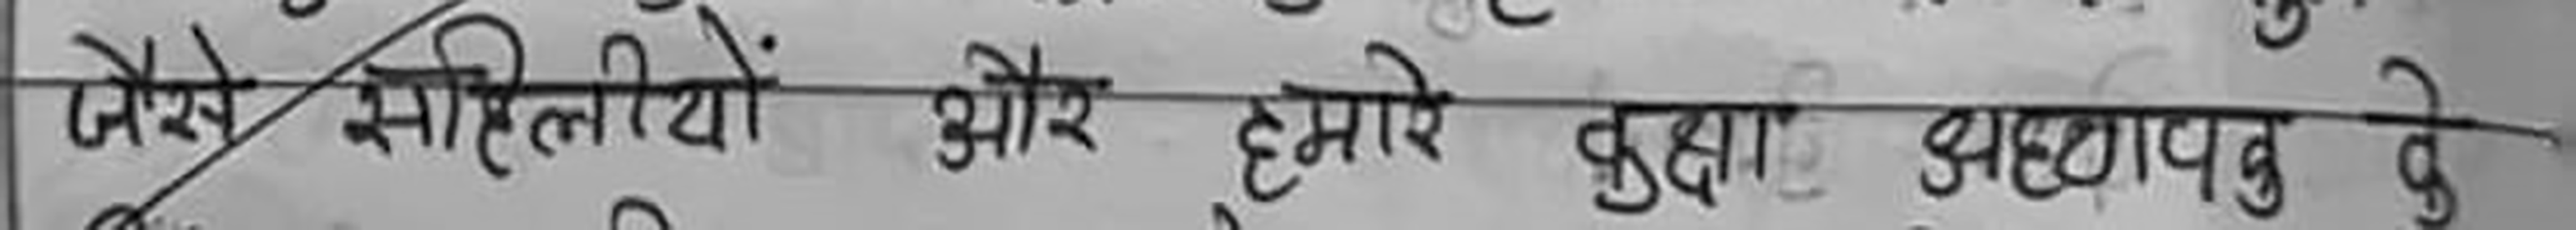 जैसे सहिलीयों और हमारे कक्षा अध्यापक के